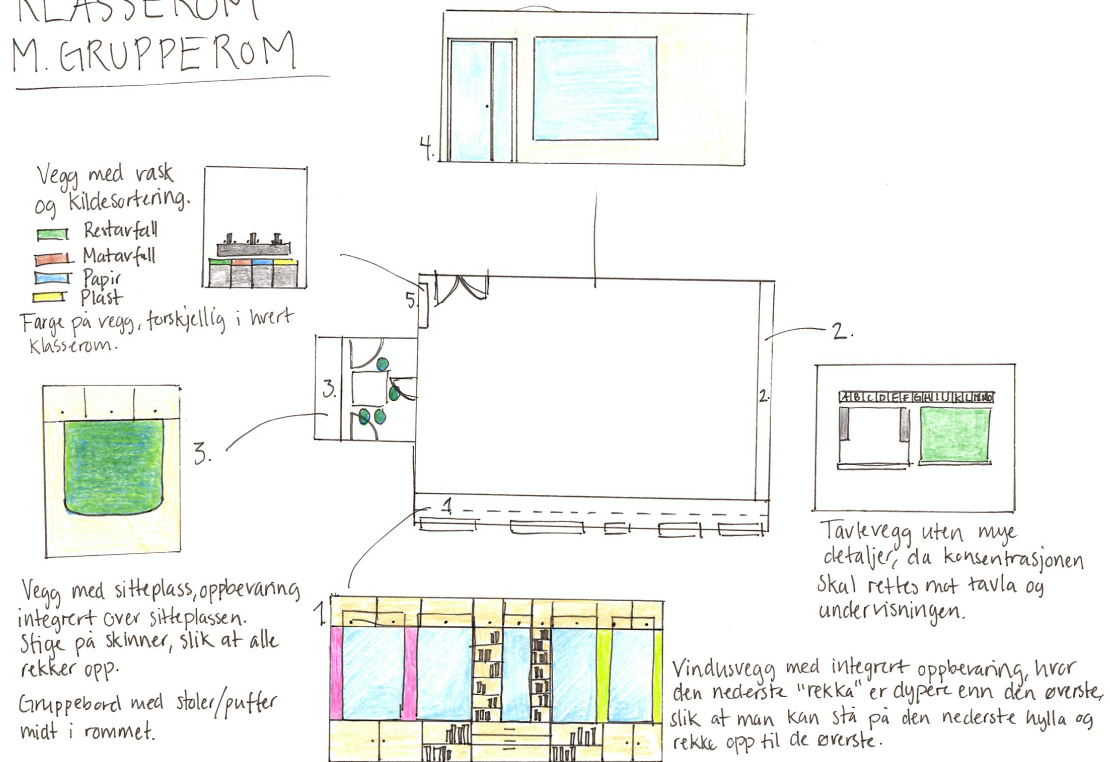 KLASSEROM
M. GRUPPEROM
4.
Vegg med vask
og kildesortering.
Restavfall
Matavfall
Papir
Plast
Farge på vegg, forskjellig i hvert
klasserom.
5.
2.
3.
2.
3.
A B C D E F G H I J K L M N O
1.
Tavlevegg uten mye
detaljer, da konsentrasjonen
skal rettes mot tavla og
undervisningen.
Vegg med sitteplass, oppbevaring
integrert over sitteplassen.
Stige på skinner, slik at alle
rekker opp.
Gruppebord med stoler/puffer
midt i rommet.
1.
Vindusvegg med integrert oppbevaring, hvor
den nederste "rekka" er dypere enn den øverste,
slik at man kan stå på den nederste hylla og
rekke opp til de øverste.